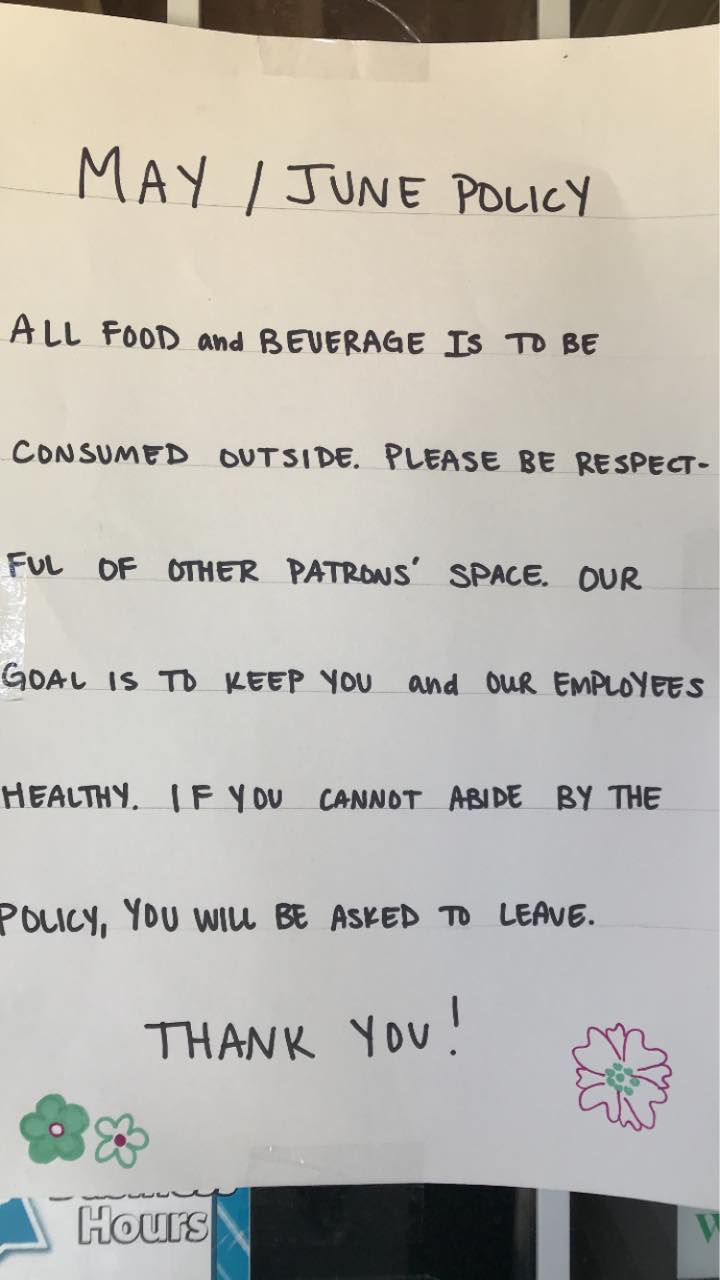 MAY / JUNE POLICY
ALL FOOD and BEVERAGE IS TO BE
CONSUMED OUTSIDE. PLEASE BE RESPECT-
FUL OF OTHER PATRONS' SPACE. OUR
GOAL IS TO KEEP YOU and OUR EMPLOYEES
HEALTHY. IF YOU CANNOT ABIDE BY THE
POLICY, YOU WILL BE ASKED TO LEAVE.
THANK YOU!
Hours